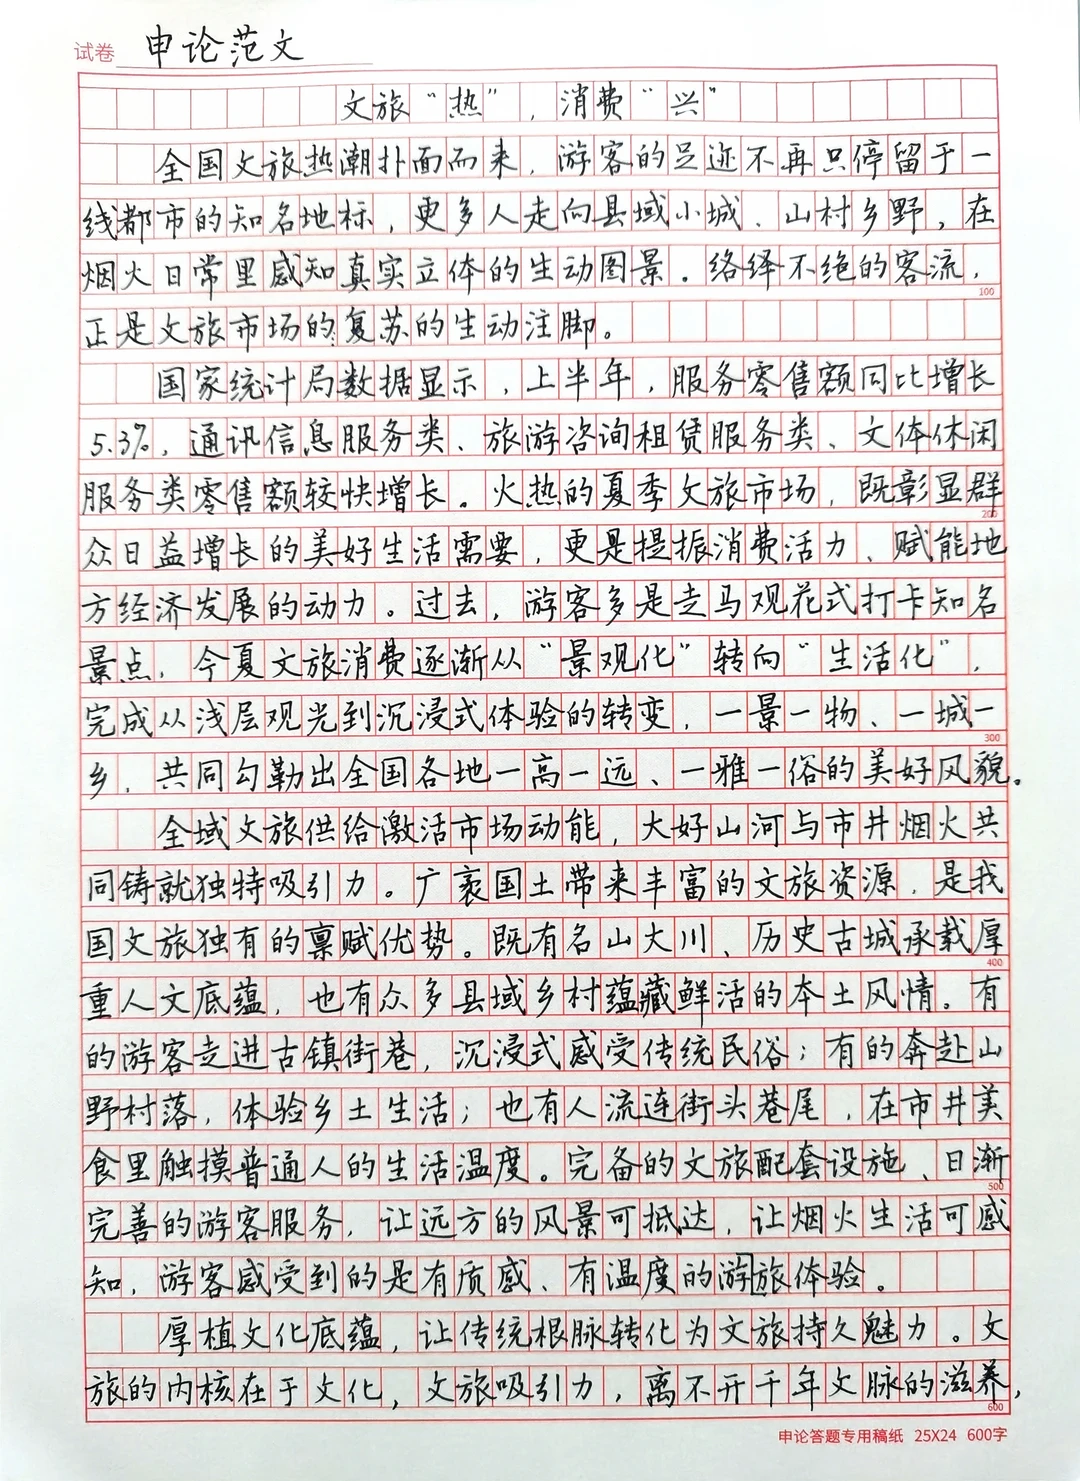 试卷 申论范文
文旅“热”，消费“兴”
全国文旅热潮扑面而来，游客的足迹不再只停留于一
线都市的知名地标，更多人走向县域小城、山村乡野，在
烟火日常里感知真实立体的生动图景。络绎不绝的客流，
100
正是文旅市场的复苏的生动注脚。
国家统计局数据显示，上半年，服务零售额同比增长
5.3%，通讯信息服务类、旅游咨询租赁服务类、文体休闲
服务类零售额较快增长。火热的夏季文旅市场，既彰显群
200
众日益增长的美好生活需要，更是提振消费活力、赋能地
方经济发展的动力。过去，游客多是走马观花式打卡知名
景点，今夏文旅消费逐渐从“景观化”转向“生活化”，
完成从浅层观光到沉浸式体验的转变，一景一物、一城一
300
乡，共同勾勒出全国各地一高一远、一雅一俗的美好风貌。
全域文旅供给激活市场动能，大好山河与市井烟火共
同铸就独特吸引力。广袤国土带来丰富的文旅资源，是我
国文旅独有的禀赋优势。既有名山大川、历史古城承载厚
400
重人文底蕴，也有众多县域乡村蕴藏鲜活的本土风情。有
的游客走进古镇街巷，沉浸式感受传统民俗；有的奔赴山
野村落，体验乡土生活；也有人流连街头巷尾，在市井美
食里触摸普通人的生活温度。完备的文旅配套设施、日渐
500
完善的游客服务，让远方的风景可抵达，让烟火生活可感
知，游客感受到的是有质感、有温度的游旅体验。
厚植文化底蕴，让传统根脉转化为文旅持久魅力。文
旅的内核在于文化，文旅吸引力，离不开千年文脉的滋养，
600
申论答题专用稿纸 25X24 600字